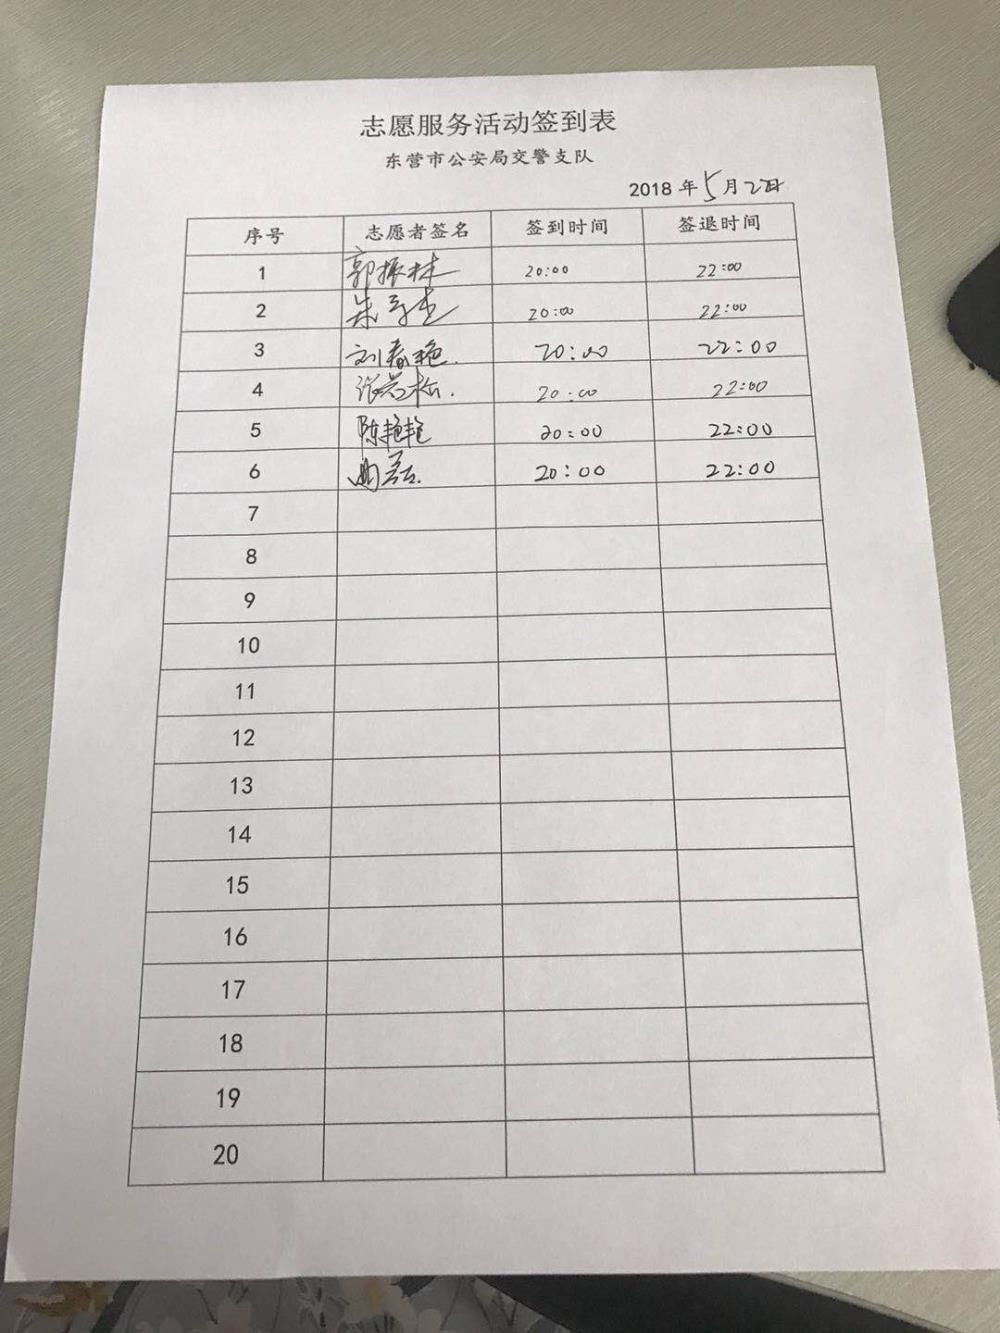 志愿服务活动签到表
东营市公安局交警支队
2018 年 5 月 2日
序号 志愿者签名 签到时间 签退时间
1 郭振林 20:00 22:00
2 20:00 22:00
3 刘春艳. 20:00 22:00
4 20:00 22:00
5 陈艳艳 20:00 22:00
6 曲磊. 20:00 22:00
7
8
9
10
11
12
13
14
15
16
17
18
19
20